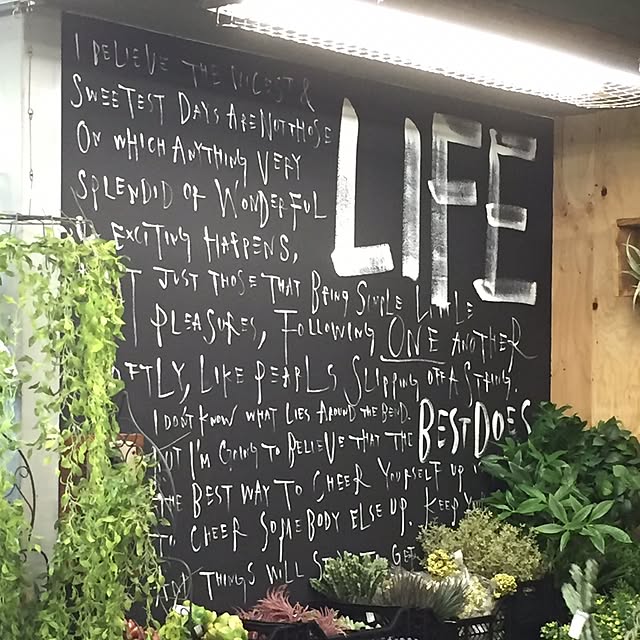 LIFE
I BELIEVE THE NICEST &
SWEETEST DAYS ARE NOT THOSE
ON WHICH ANYTHING VERY
SPLENDID OF WONDERFUL
EXCITING HAPPENS,
T JUST THOSE THAT BRING SIMPLE LITTLE
PLEASURES, FOLLOWING ONE ANOTHER
FTLY, LIKE PEARLS SLIPPING OFF A STRING.
I DON'T KNOW WHAT LIES AROUND THE BEND.
UT I'M GOING TO BELIEVE THAT THE BEST DOES
THE BEST WAY TO CHEER YOURSELF UP
TO CHEER SOMEBODY ELSE UP. KEEP
THINGS WILL